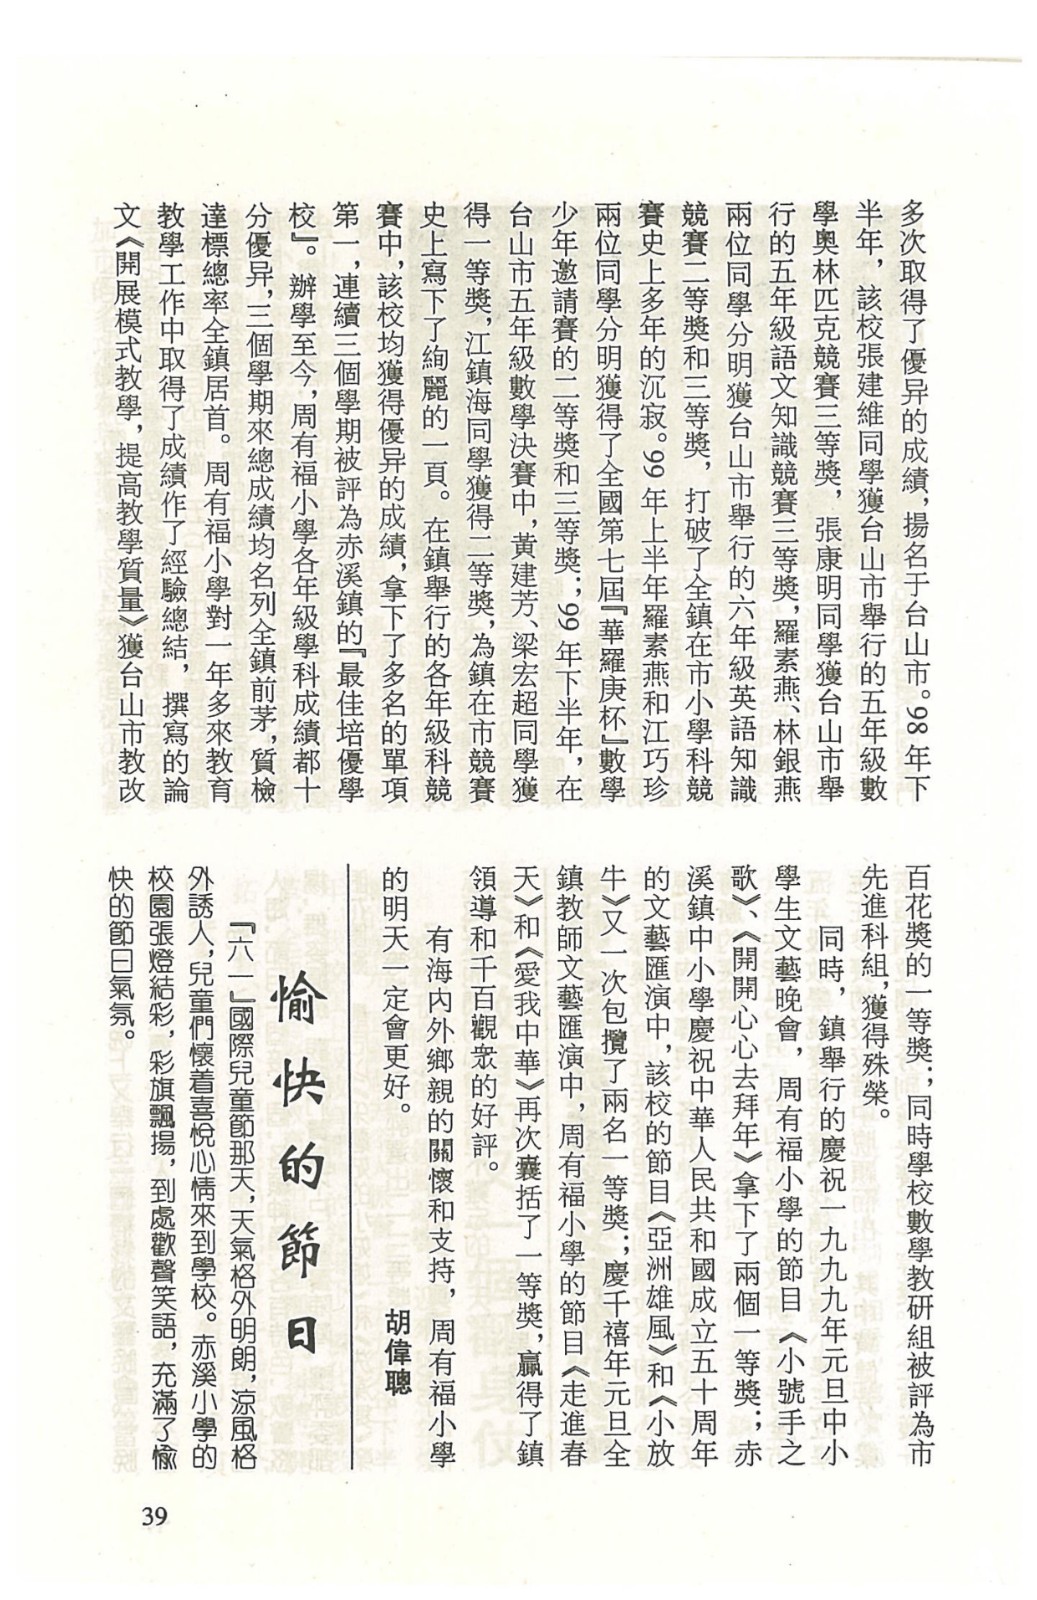 多次取得了優异的成績，揚名于台山市。98年下
半年，該校張建維同學獲台山市舉行的五年級數
學奧林匹克競賽三等獎，張康明同學獲台山市舉
行的五年級語文知識競賽三等獎，羅素燕、林銀燕
兩位同學分明獲台山市舉行的六年級英語知識
競賽二等獎和三等獎，打破了全鎮在市小學科競
賽史上多年的沉寂。99年上半年羅素燕和江巧珍
兩位同學分明獲得了全國第七屆『華羅庚杯』數學
少年邀請賽的二等獎和三等獎；99年下半年，在
台山市五年級數學決賽中，黃建芳、梁宏超同學獲
得一等獎，江鎮海同學獲得二等獎，為鎮在市競賽
史上寫下了絢麗的一頁。在鎮舉行的各年級科競
賽中，該校均獲得優异的成績，拿下了多名的單項
第一，連續三個學期被評為赤溪鎮的『最佳培優學
校』。辦學至今，周有福小學各年級學科成績都十
分優异，三個學期來總成績均名列全鎮前茅，質檢
達標總率全鎮居首。周有福小學對一年多來教育
教學工作中取得了成績作了經驗總結，撰寫的論
文《開展模式教學，提高教學質量》獲台山市教改
百花獎的一等獎；同時學校數學教研組被評為市
先進科組，獲得殊榮。
同時，鎮舉行的慶祝一九九九年元旦中小
學生文藝晚會，周有福小學的節目《小號手之
歌》、《開開心心去拜年》拿下了兩個一等獎；赤
溪鎮中小學慶祝中華人民共和國成立五十周年
的文藝匯演中，該校的節目《亞洲雄風》和《小放
牛》又一次包攬了兩名一等獎；慶千禧年元旦全
鎮教師文藝匯演中，周有福小學的節目《走進春
天》和《愛我中華》再次囊括了一等獎，贏得了鎮
領導和千百觀眾的好評。
有海內外鄉親的關懷和支持，周有福小學
的明天一定會更好。
胡偉聰
愉快的節日
『六一』國際兒童節那天，天氣格外明朗，涼風格
外誘人，兒童們懷着喜悅心情來到學校。赤溪小學的
校園張燈結彩，彩旗飄揚，到處歡聲笑語，充滿了愉
快的節日氣氛。
39